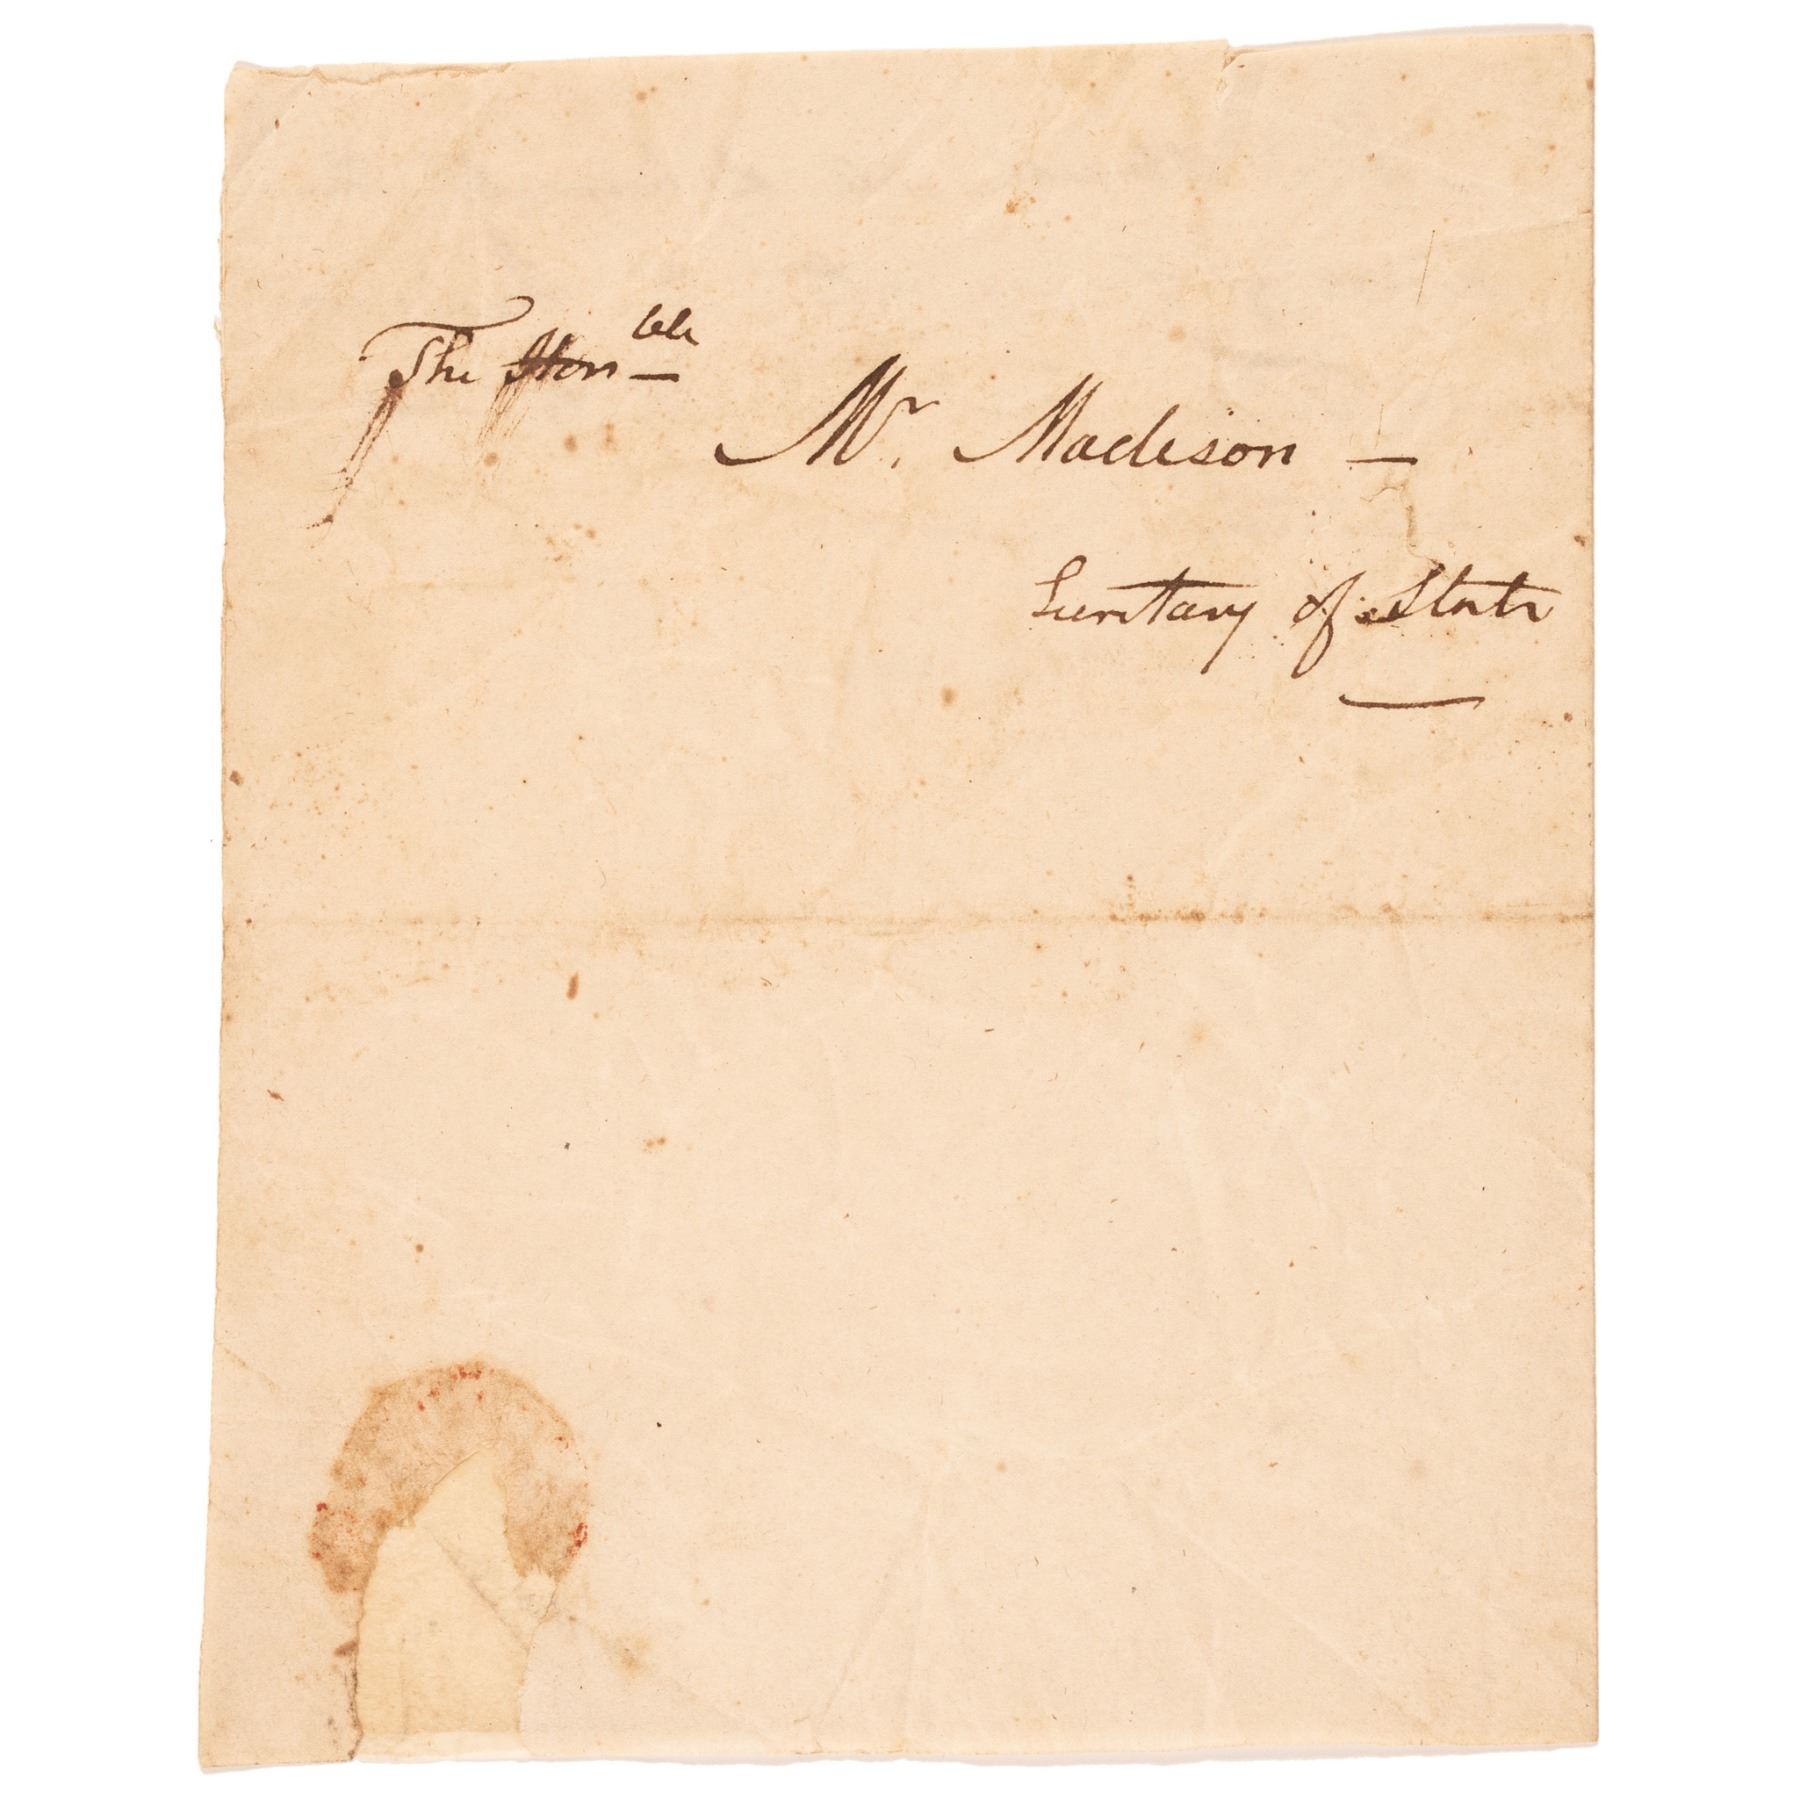 The Honble
Mr. Madison —
Secretary of State